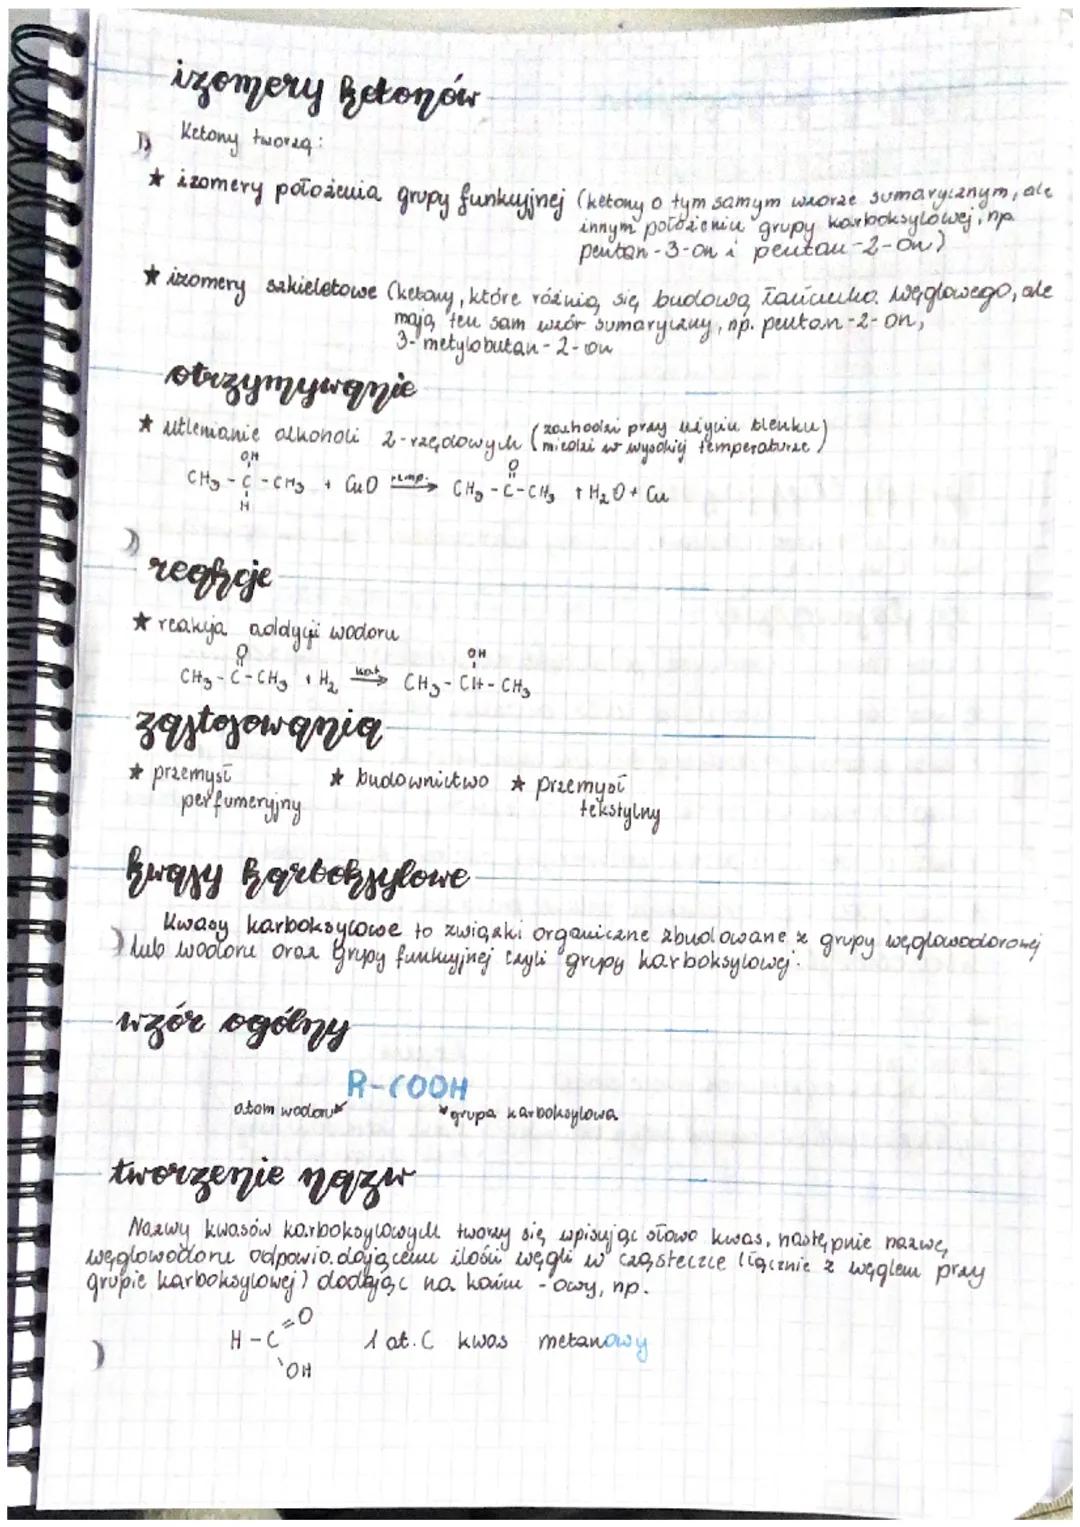 izomery ketonów
Ketony tworzą:
★ izomery położenia grupy funkcyjnej (ketony o tym samym wzorze sumarycznym, ale
innym położeniu grupy karboksylowej, np.
pentan-3-on i pentan-2-on)
★ izomery szkieletowe (ketony, które różnią się budową łańcucha węglowego, ale
mają ten sam wzór sumaryczny, np. pentan-2-on,
3-metylobutan-2-on
otrzymywanie
★ utlenianie alkoholi 2-rzędowych (zachodzi przy użyciu tlenku)
(miedzi w wysokiej temperaturze)
OH O
CH₃-C-CH₃ + CuO temp.→ CH₃-C-CH₃ + H₂O + Cu
H
reakcje
★ reakcja addycji wodoru
O OH
CH₃-C-CH₃ + H₂ kat→ CH₃-CH-CH₃
zastosowania
★ przemysł ★ budownictwo ★ przemysł
perfumeryjny tekstylny
kwasy karboksylowe
Kwasy karboksylowe to związki organiczne zbudowane z grupy węglowodorowej
lub wodoru oraz grupy funkcyjnej czyli grupy karboksylowej.
wzór ogólny
R-COOH
atom wodoru grupa karboksylowa
tworzenie nazw
Nazwy kwasów karboksylowych tworzy się wpisując słowo kwas, następnie nazwę
węglowodoru odpowiadającemu ilości węgli w cząsteczce (łącznie z węglem przy
grupie karboksylowej) dodając na końcu -owy, np.
=O
H-C 1 at. C kwas metanowy
OH